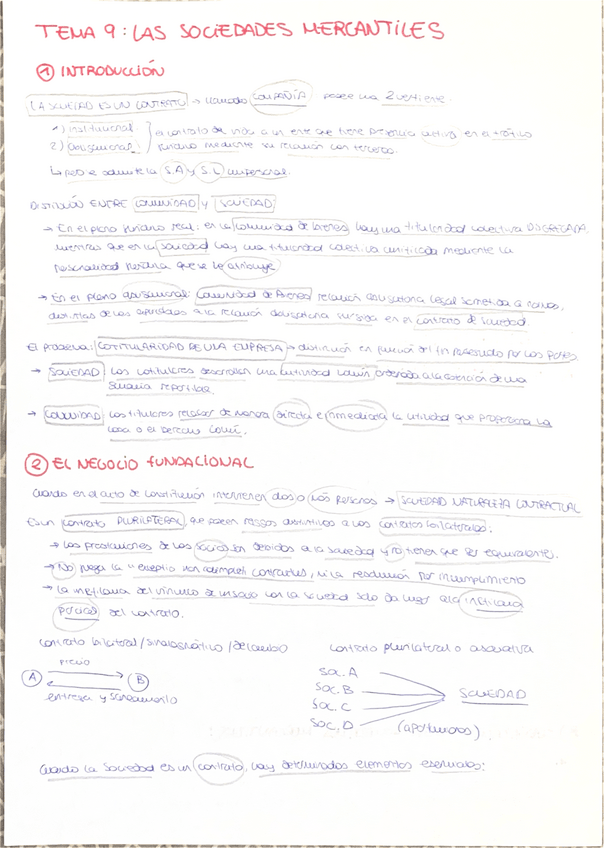 TEMA 9: LAS SOCIEDADES MERCANTILES
① INTRODUCCIÓN
LA SOCIEDAD ES UN CONTRATO → llamado COMPAÑÍA posee una 2 vertiene.
1) institucional.
2) obligacional.
el contrato da vida a un ente que tiene presencia activa en el tráfico
jurídico mediante su relación con terceros.
↳ pero se admite la S.A y S.L unipersonal.
DISTINCIÓN ENTRE COMUNIDAD y SOCIEDAD:
→ En el plano jurídico real: en la comunidad de bienes hay una titularidad colectiva DISGREGADA,
mientras que en la sociedad hay una titularidad colectiva unificada mediante la
personalidad jurídica que se le atribuye.
→ En el plano obligacional: Comunidad de Bienes relación obligatoria legal sometida a
distintas de las a la relación obligatoria surgida en el contrato de sociedad.
El problema: COTITULARIDAD DE UNA EMPRESA → distinción en función del fin perseguido por las partes.
→ SOCIEDAD: Los cotitulares desarrollan una actividad común, ordenada a la obtención de una
ganancia repartible.
→ COMUNIDAD: Los titulares de manera directa e inmediata la utilidad que proporciona la
cosa o el derecho común.
② EL NEGOCIO FUNDACIONAL
Cuando en el acto de constitución intervienen dos o más personas → SOCIEDAD NATURALEZA CONTRACTUAL
Es un contrato PLURILATERAL, que poseen rasgos distintivos a los contratos bilaterales:
→ Las prestaciones de los socios son debidas a la sociedad y no tienen que ser equivalente.
→ No juega la "exceptio non adimpleti contractus, ni la resolución por incumplimiento
→ La ineficacia del vínculo de un socio con la sociedad solo da lugar a la ineficacia
parcial del contrato.
contrato bilateral / sinalagmático / de cambio
contrato plurilateral o asociativa
precio
A B
entrega y saneamiento
Soc. A
Soc. B
Soc. C
Soc. D
SOCIEDAD
(aportaciones).
Cuando la sociedad es un contrato, hay determinados elementos esenciales: